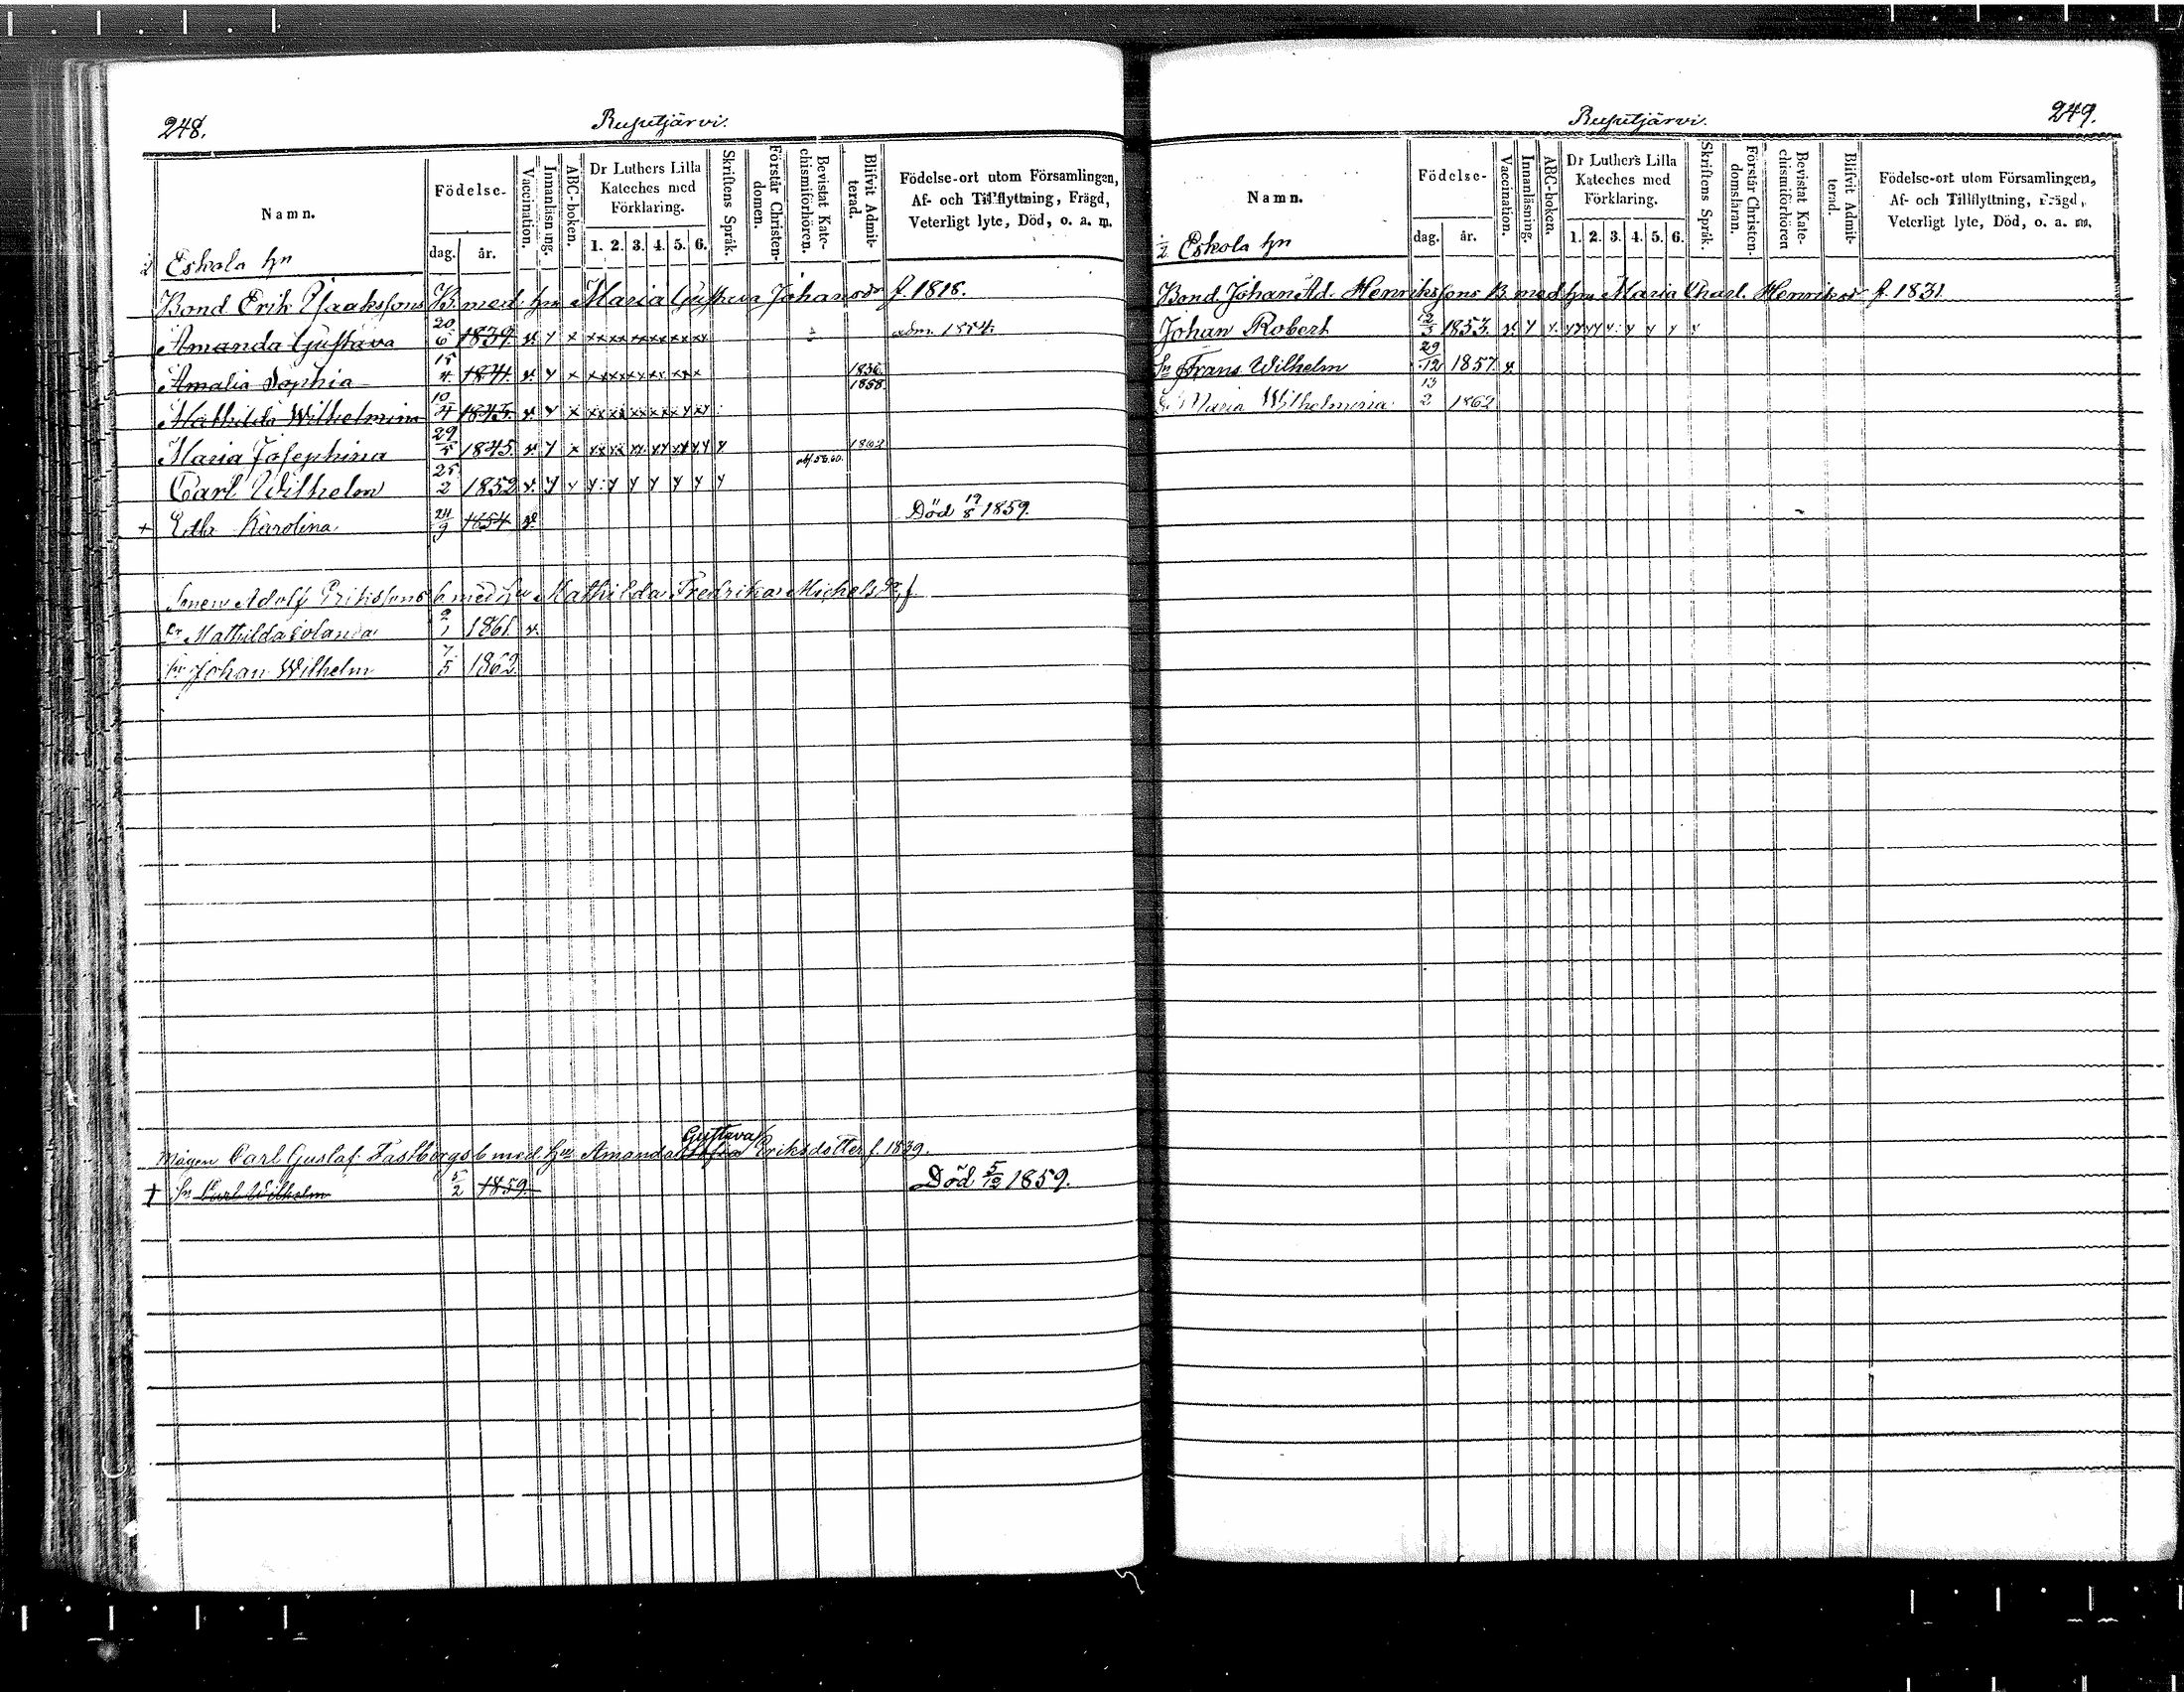 248.
Ruputjärvi.
Namn.
Födelse-
dag.
år.
Vaccination.
Innanläsning.
ABC-boken.
Dr Luthers Lilla
Kateches med
Förklaring.
1. 2. 3. 4. 5. 6.
Skriftens Språk.
Förstår Christen-
domen.
Bevistat Kate-
chismiförhören.
Blifvit Admit-
terad.
Födelse-ort utom Församlingen,
Af- och Tillflyttning, Frägd,
Veterligt lyte, Död, o. a. m.
Eskola hn
Bond. Erik Isaakssons B. med hu Maria Gustava Johansdr f. 1818.
Amanda Gustava 20/6 1839. v. y x xx xx xx xx xx xx adm. 1854.
Amalia Sophia 15/4 1841. v. y x 1856. 1858.
Mathilda Wilhelmina 10/4 1843. v. y x
Maria Josephina 29/5 1845. v. y x y 1862
Carl Wilhelm 25/2 1852 v. y y y y y y y y y
+ Karolina 24/9 1854 v. Död 19/8 1859.
Sonen Adolf Erikssons b med hu Mathilda Fredrika Michelsdr f.
Dr Mathilda 2/1 1861. v.
Sn Johan Wilhelm 7/5 1862.
Mågen Carl Gustaf Fastbergs b med hu Amanda Gustava Eriksdotter f. 1839.
† Sn Carl Wilhelm 5/2 1859. Död 5/12 1859.
Ruputjärvi.
249.
Namn.
Födelse-
dag.
år.
Vaccination.
Innanläsning.
ABC-boken.
Dr Luther's Lilla
Kateches med
Förklaring.
1. 2. 3. 4. 5. 6.
Skriftens Språk.
Förstår Christen-
domsläran.
Bevistat Kate-
chismiförhören
Blifvit Admit-
terad.
Födelse-ort utom Församlingen,
Af- och Tillflyttning, Frägd,
Veterligt lyte, Död, o. a. m.
1/2 Eskola hn
Bond. Johan Ad. Henrikssons B. med hu Maria Charl. Henriksdr f. 1831
Johan Robert 1853. v. y y. y y y y y y y y
Sn Frans Wilhelm 29/12 1857. v.
Maria Wilhelmina 13/2 1862